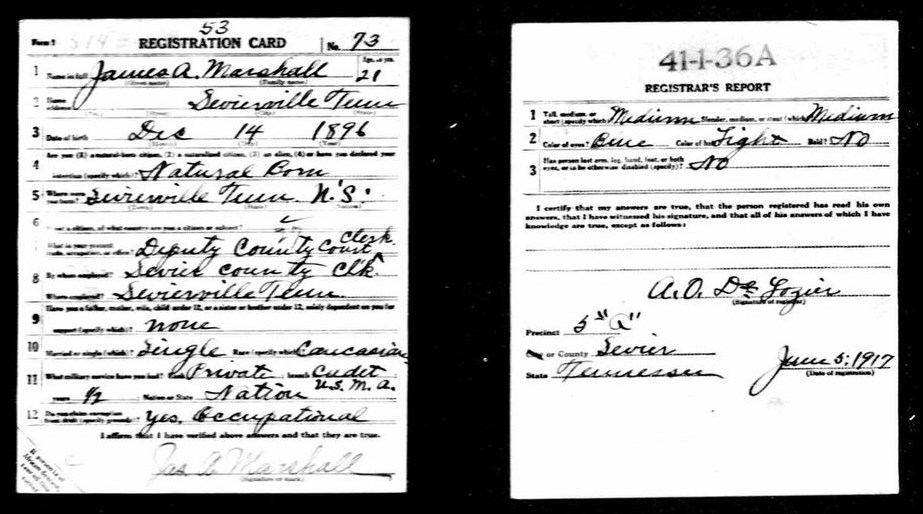 53
Form 1 REGISTRATION CARD No. 73
1 Name in full James A. Marshall Age, in yrs. 21
(Given name) (Family name)
2 Home address Sevierville Tenn
(No.) (Street) (City) (State)
3 Date of birth Dec 14 1896
(Month) (Day) (Year)
Are you (1) a natural-born citizen, (2) a naturalized citizen, (3) an alien, (4) or have you declared your
4 intention (specify which)? Natural Born
5 Where were you born? Sevierville Tenn.
(Town) (State)
6 If not a citizen, of what country are you a citizen or subject?
7 What is your present trade, occupation, or office? Deputy County Court Clerk
8 By whom employed? Sevier County Clk
Where employed? Sevierville Tenn.
9 Have you a father, mother, wife, child under 12, or a sister or brother under 12, solely dependent on you for
support (specify which)? none
10 Married or single (which)? Single Race (specify which)? Caucasian
11 What military service have you had? Rank Private branch Cadet
U.S.M.A.
years 1/2 Nation or State Nation
12 Do you claim exemption from draft (specify grounds)? Yes, Occupational
I affirm that I have verified above answers and that they are true.
Jas A Marshall
(Signature or mark)
41-1-36A
REGISTRAR'S REPORT
1 Tall, medium, or short (specify which)? Medium Slender, medium, or stout (which)? Medium
2 Color of eyes? Blue Color of hair? Light Bald? No
3 Has person lost arm, leg, hand, foot, or both eyes, or is he otherwise disabled (specify)? No
I certify that my answers are true, that the person registered has read his own
answers, that I have witnessed his signature, and that all of his answers of which I have
knowledge are true, except as follows:
A. O. De Lozier
(Signature of registrar)
Precinct 5 "a"
City or County Sevier
State Tennessee June 5, 1917
(Date of registration)